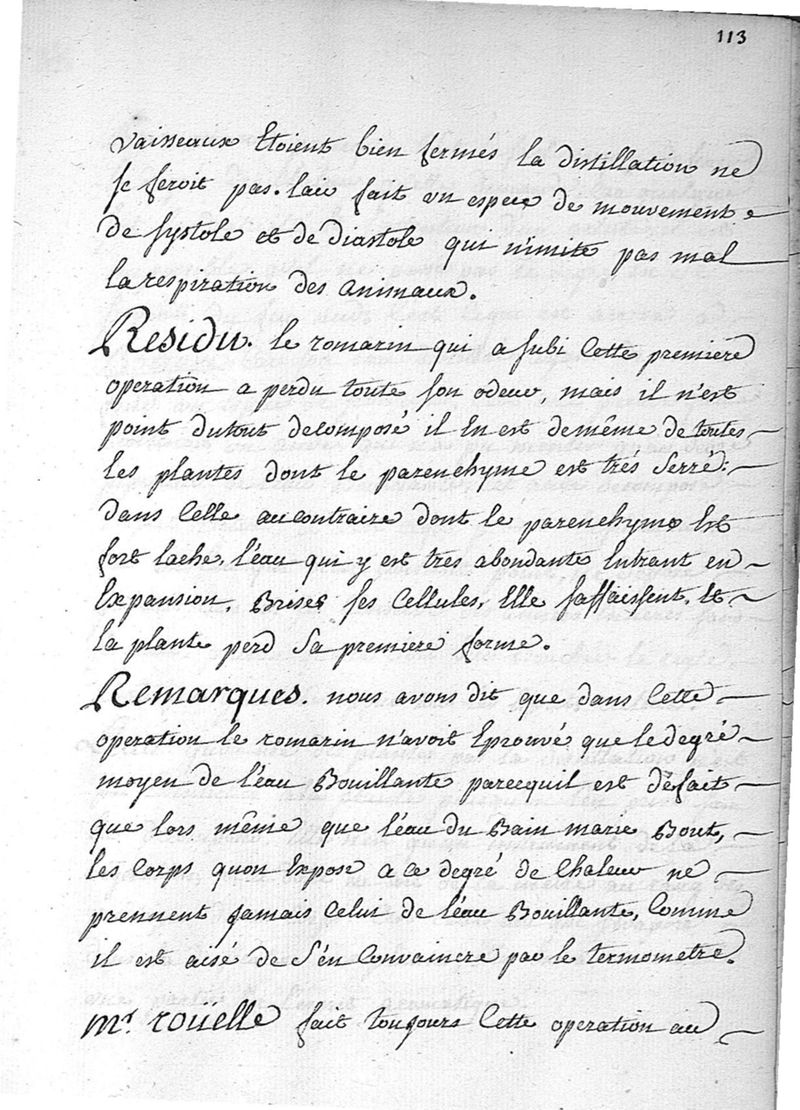 113
vaisseaux Etoient bien fermés la distillation ne
se feroit pas. l'air fait un espece de mouvement
de systole et de diastole qui n'imite pas mal
la respiration des animaux.
Residu. le romarin qui a subi Cette premiere
operation a perdu toute son odeur, mais il n'est
point dutout decomposé il En est demême de toutes
les plantes dont le parenchyme est trés serré:
dans Celle aucontraire dont le parenchyme Est
fort lache, l'éau qui y est tres abondante Entrant en
Expansion, Brise ses Cellules, Elle s'affaissent, Et
la plante perd sa premiere forme.
Remarques. nous avons dit que dans Cette
operation le romarin n'avoit Eprouvé que le degré
moyen de l'éau Bouillante parcequil est de fait
que lors même que l'éau du Bain marie Bout,
les Corps quon Expose a ce degré de Chaleur ne
prennent jamais Celui de l'éau Bouillante, Comme
il est aisé de s'en Convaincre par le termometre.
Mr. rouelle fait toujours Cette operation au